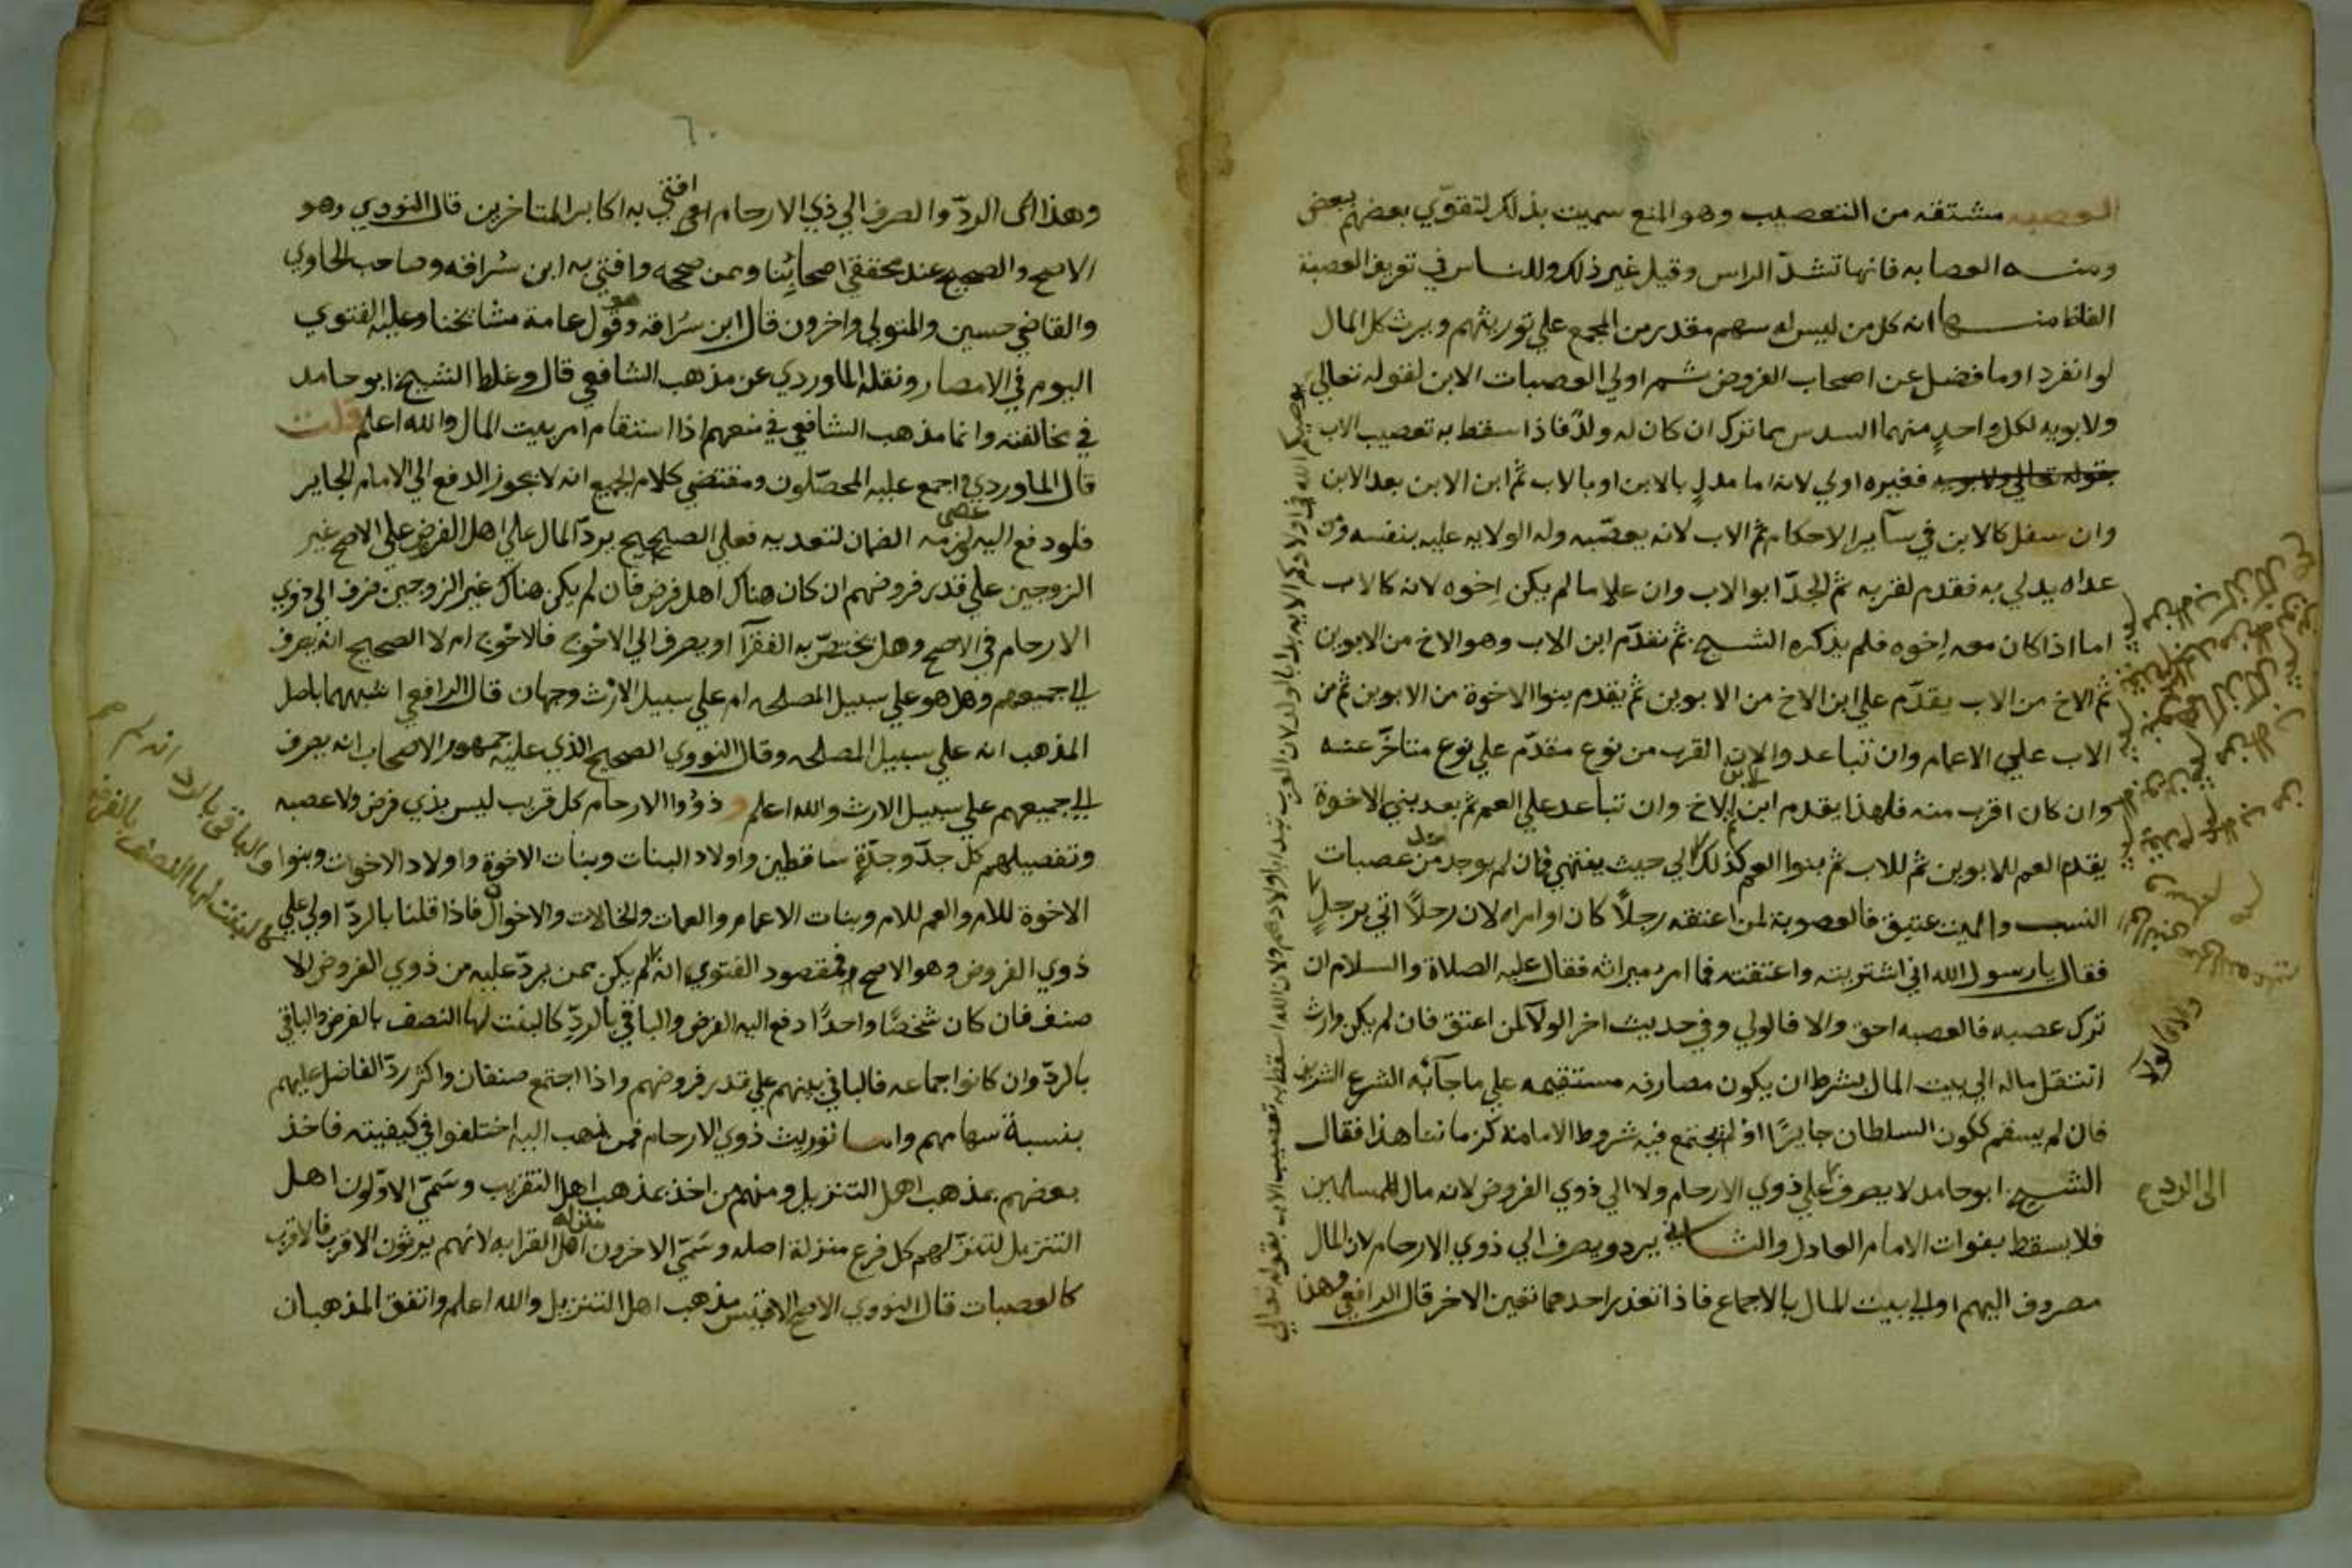 العصبه مشتقه من التعصيب وهو المنع سميت بذلك لتقوّي بعضهم ببعض
ومنه العصابه فانها تشدّ الراس وقيل غير ذلك وللناس في تعريف العصبة
الفاظ منها انه كل من ليس له سهم مقدر من المجمع علي توريثهم ويرث كل المال
لو انفرد او ما فضل عن اصحاب الفروض ثم اولي العصبات الابن لقوله تعالي
ولابويه لكل واحدٍ منهما السدس مما ترك ان كان له ولدٌ فاذا سقط به تعصيب الاب
بقوله تعالي ولابويه فغيره اولي لانه اما مدلٍ بالابن او بالاب ثم ابن الابن بعد الابن
وان سفل كالابن في سآير الاحكام ثم الاب لانه يعصّبه وله الولايه عليه بنفسه ومن
عداه يدلي به فقدم لقربه ثم الجدّ ابو الاب وان علا ما لم يكن اخوه لانه كالاب
اما اذا كان معه اخوه فلم يذكره الشيخ ثم نقدّم ابن الاب وهو الاخ من الابوين
ثم الاخ من الاب يقدّم علي ابن الاخ من الابوين ثم يقدم بنوا الاخوة من الابوين ثم من
الاب علي الاعمام وان تباعدوا لان القرب من نوع مقدّم علي نوع متاخّر عنه
وان كان اقرب منه فلهذا يقدم ابن ابن الاخ وان تباعد علي العم ثم بعد بني الاخوة
يقدم العم للابوين ثم للاب ثم بنوا العم كذلك الي حيث ينتهي فان لم يوجد من عصبات
النسب والميت عتيق فالعصوبة لمن اعتقه رجلاً كان او امراه لان رجلاً اتي برجلٍ
فقال يارسول الله اني اشتريته واعتقته فما امر ميراثه فقال عليه الصلاة والسلام ان
ترك عصبه فالعصبه احق والا فالولي وفي حديث اخر الولآ لمن اعتق فان لم يكن وارث
انتقل ماله الي بيت المال بشرط ان يكون مصارفه مستقيمه علي ما جآئه الشرع الشريف
فان لم يسقم ككون السلطان جايرًا او لم يجتمع فيه شروط الامامة كزماننا هذا فقال
الشيخ ابو حامد لا يصرف علي ذوي الارحام ولا الي ذوي الفروض لانه مال المسلمين
فلا يسقط بفوات الامام العادل والثاني يرد ويصرف الي ذوي الارحام لان المال
مصروف اليهم او الي بيت المال بالاجماع فاذا تعذر احدهما تعين الاخر قال الرافعي وهذا
الي الرد
وهذا اى الردّ والصرف الي ذي الارحام افتي به اكابر المتاخرين قال النووي وهو
الاصح والصحيح عند محققي اصحابنا وممن صححه وافتي به ابن سراقه وصاحب الحاوي
والقاضي حسين والمتولي واخرون قال ابن سراقه وهو قول عامة مشائخنا وعليه الفتوي
اليوم في الامصار ونقله الماوردي عن مذهب الشافعي قال وغلط الشيخ ابو حامد
في مخالفته وانما مذهب الشافعي في منعهم اذا استقام امر بيت المال والله اعلم قلت
قال الماوردي اجمع عليه المحصّلون ومقتضي كلام الجميع انه لا يجوز الدفع الي الامام الجاير
فلو دفع اليه عصى ولزمه الضمان لتعديه فعلي الصحيح يردّ المال علي اهل الفرض علي الاصح غير
الزوجين علي قدر فروضهم ان كان هناك اهل فرض فان لم يكن هناك غير الزوجين صرف الي ذوي
الارحام في الاصح وهل يختصّ به الفقرآ او يصرف الي الاحوج فالاحوج ام لا الصحيح انه يصرف
الي جميعهم وهل هو علي سبيل المصلحه ام علي سبيل الارث وجهان قال الرافعي اشبههما باصل
المذهب انه علي سبيل المصلحه وقال النووي الصحيح الذي عليه جمهور الاصحاب انه يصرف
الي جميعهم علي سبيل الارث والله اعلم و ذووا الارحام كل قريب ليس بذي فرض ولا عصبه
وتفصيلهم كل جدّ وجدّةٍ ساقطين واولاد البنات وبنات الاخوة واولاد الاخوات وبنوا
الاخوة للام والعم للام وبنات الاعمام والعمات والخالات والاخوال فاذا قلنا بالردّ اولي علي
ذوي الفروض وهو الاصح فمقصود الفتوي انه لم يكن ممن يردّ عليه من ذوي الفروض الا
صنف فان كان شخصًا واحدًا دفع اليه الفرض والباقي بالردّ كالبنت لها النصف بالفرض والباقي
بالردّ وان كانوا جماعه فالباقي بينهم علي قدر فروضهم واذا اجتمع صنفان واكثر ردّ الفاضل عليهم
بنسبة سهامهم واما توريث ذوي الارحام فمن ذهب اليه اختلفوا في كيفيته فاخذ
بعضهم بمذهب اهل التنزيل ومنهم من اخذ بمذهب اهل التقريب وسمّي الاوّلون اهل
التنزيل لتنزّلهم كل فرع منزلة اصله وسمّي الاخرون اهل القرابه لانهم يورثون الاقرب فالاقرب
كالعصبات قال النووي الاصح الاقيس مذهب اهل التنزيل والله اعلم واتفق المذهبان
والباقي بالرد
كالبنت لها النصف بالفرض